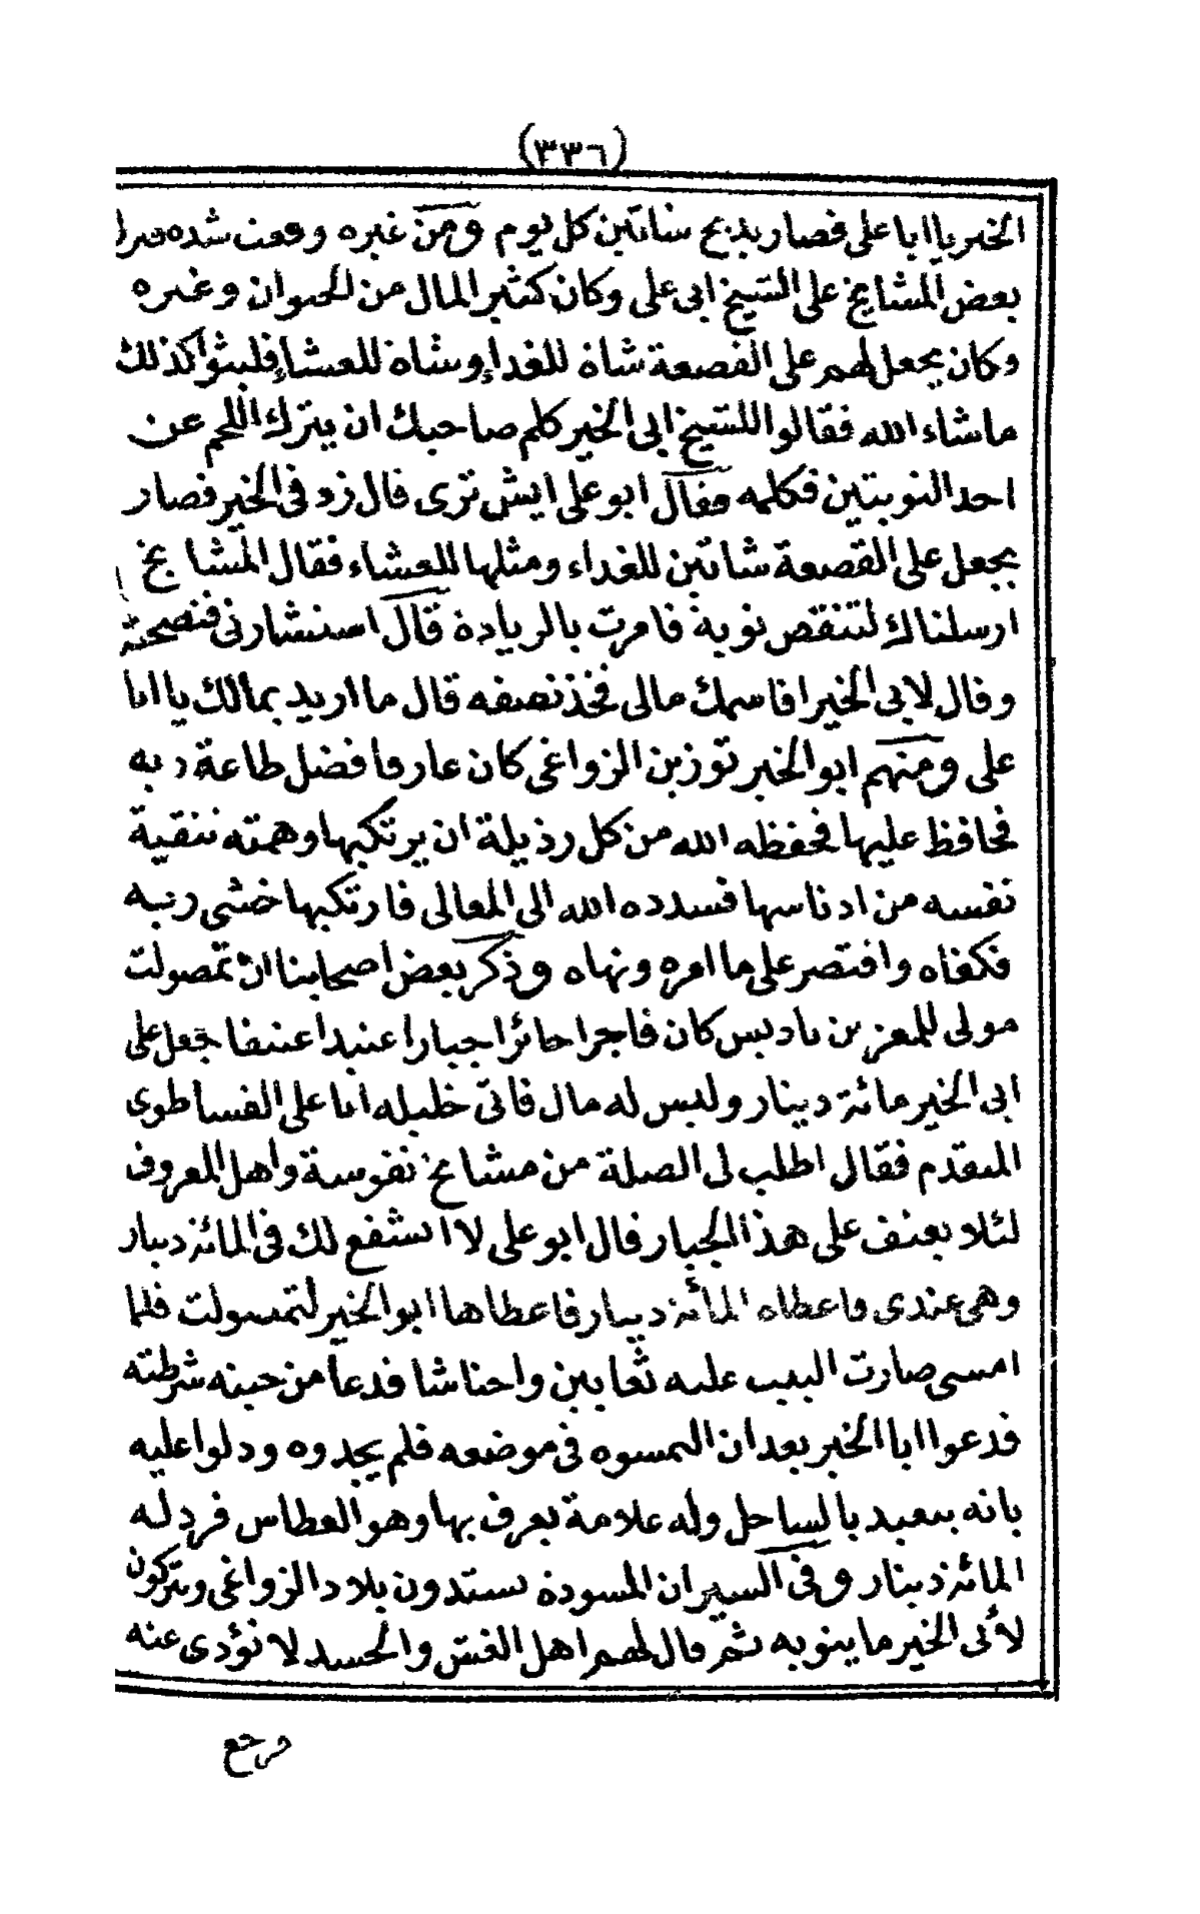 (٣٣٦)
الخير يا ابا على فصار يذبح شاتين كل يوم ومن غيره وقعت شده فنزل
بعض المشايخ على الشيخ ابى على وكان كثير المال من الحيوان وغيره
وكان يجعل لهم على القصعة شاة للغداء وشاة للعشاء فلبثوا كذلك
ما شاء الله فقالوا للشيخ ابى الخير كلم صاحبك ان يترك اللحم عن
احد النوبتين فكلمه فقال ابو على ايش ترى قال زد فى الخير فصار
يجعل على القصعة شاتين للغداء ومثلها للعشاء فقال المشايخ
ارسلناك لتنقص نوبة فامرت بالزيادة قال استشارنى فنصحته
وقال لابى الخير اقاسمك مالى فخذ نصفه قال ما اريد بمالك يا ابا
على ومنهم ابو الخير توزين الزواغى كان عارفا فضل طاعة ربه
فحافظ عليها فحفظه الله من كل رذيلة ان يرتكبها وهمته تنقية
نفسه من ادناسها فسدده الله الى المعالى فارتكبها خشى ربه
فكفاه واقتصر على ما امره ونهاه وذكر بعض اصحابنا ان تمصولت
مولى للمعز بن باديس كان فاجرا جائرا جبارا عنيدا عنيفا جعل على
ابى الخير مائة دينار وليس له مال فاتى خليله ابا على الفساطوى
المتقدم فقال اطلب لى الصلة من مشايخ نفوسة واهل المعروف
لئلا يعنف على هذا الجبار قال ابو على لا استشفع لك فى المائة دينار
وهى عندى فاعطاه المائة دينار فاعطاها ابو الخير لتمسولت فلما
امسى صارت البيت عليه ثعابين واحناشا فدعا من حينه شرطته
فدعوا ابا الخير بعد ان التمسوه فى موضعه فلم يجدوه ودلوا عليه
بانه يتعبد بالساحل وله علامة يعرف بها وهو العطاس فرد له
المائة دينار وفى السير ان المسودة يستدون بلاد الزواغى ويتركون
لابى الخير ما ينوبه ثم قال لهم اهل الغش والحسد لا نؤدى عنه
فرجع